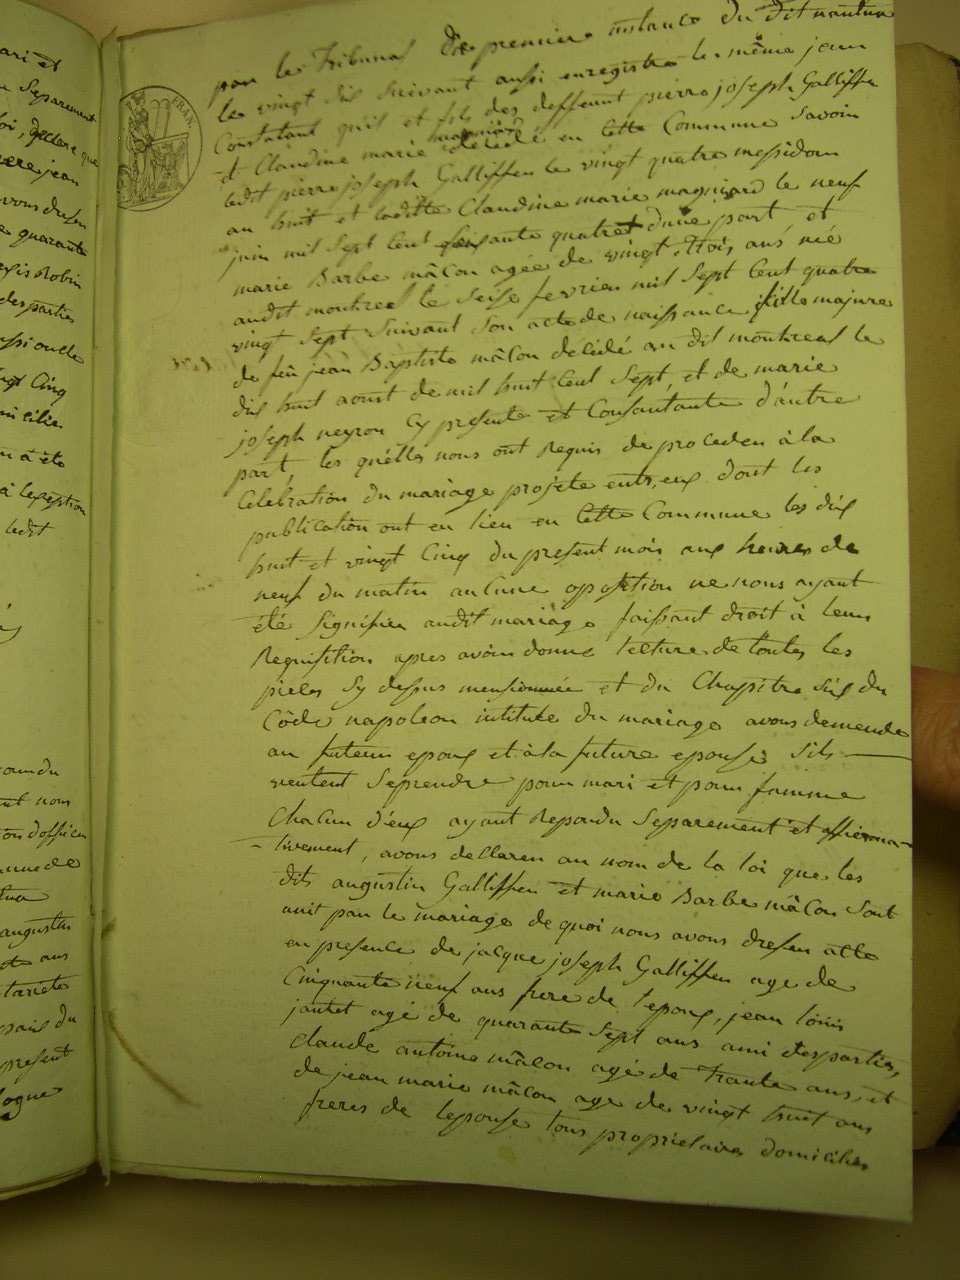 ari et
Separement
loi, declare que
jean
vous dresser
quarante
Robin
des parties
vingt Cinq
a été
ledit
nous
augustin
ans
present
FRAN
par le Tribunal de premiere instance du dit nantua
le vingt six suivant aussi enregistre le même jour
Constatant qu'il et fils des deffeunt pierre joseph Galliffen
et Claudine marie magninard décédé en cette Commune Savoir
ledit pierre joseph Galliffen le vingt quatre messidor
an huit et laditte Claudine marie magninard le neuf
juin mil Sept Cent soixante quatre d'une part et
marie Barbe mâcon agée de vingt trois ans née
audit montreal le Seise fevrier mil Sept Cent quatre
vingt Sept Suivant Son acte de naissance fille majure
de feu jean Baptiste mâcon décédé au dit montreal le
dix huit aoust de mil huit Cent Sept, et de marie
joseph neyron Cy presente et Consantante d'autre
part, les quelles nous ont Requis de proceder à la
Celebration du mariage projete entr,eux dont les
publication ont eu lieu en Cette Commune les dix
huit et vingt Cinq du present mois aux heures de
neuf du matin aucune oposition ne nous ayant
été Signifier audit mariage faissant droit à leur
Requisition apres avoir donné lecture de toutes les
pieces Sy dessus mensionnée et du Chapitre Six du
Côde napoleon intitule du mariage avons demende
au futeur epoux et à la future epouse Sils
veulent Seprendre pour mari et pour famme
Chacun D'eux ayant Repondu Separement et affirma-
tivement, avons declarer au nom de la loi que les
dits augustin Galliffen et marie Barbe mâcon Sont
unit par le mariage de quoi nous avons dresser acte
en presence de jacque joseph Galliffen age de
Cinquante neuf ans frere de l'epoux, jean louis
jantet agé de quarante Sept ans ami des parties,
Claude antoine mâcon agé de trante ans, et
de jean marie mâcon age de vingt huit ans
freres de lepouse tous proprietaires domicilies